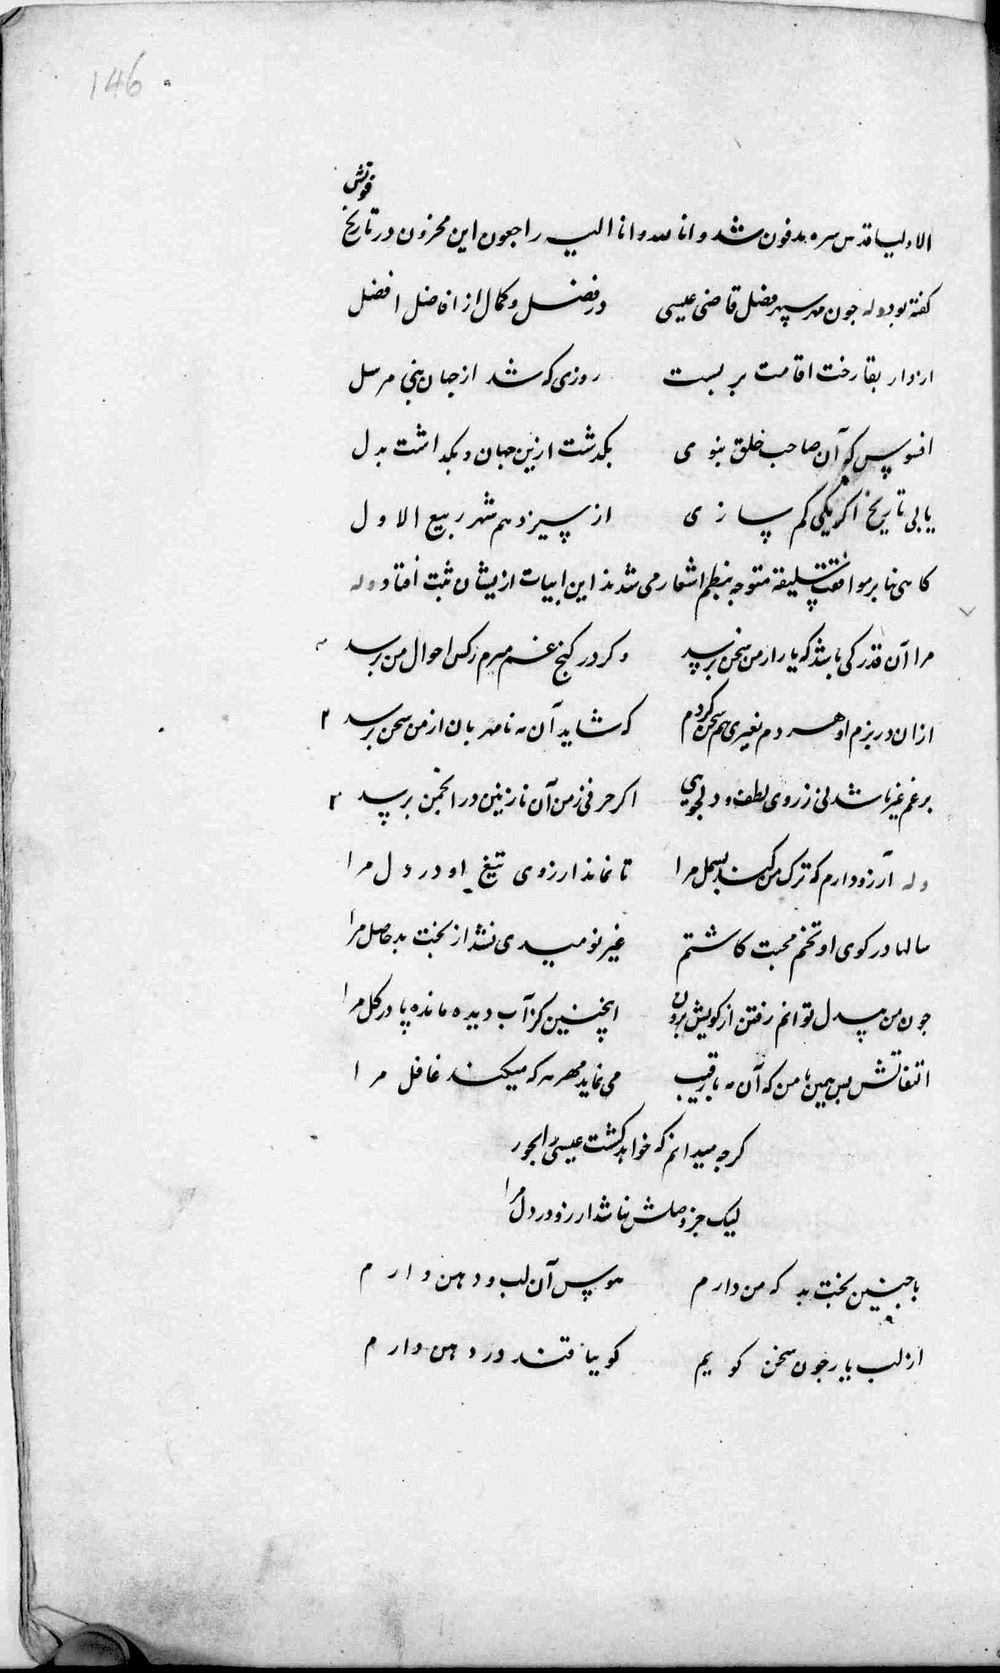 146
فوتش
الاولیا قدس سره مدفون شد و انا لله و انا الیه راجعون این محزون در تاریخ
گفته بود وله چون مه سپهر فضل قاضی عیسی در فضل و کمال از افاضل افضل
از دار بقا رخت اقامت بر بست روزی که شد از جهان نبی مرسل
افسوس که آن صاحب خلق نبوی بگذشت ازین جهان و بگذاشت بدل
یابی تاریخ اگر یکی کم سازی از سیزدهم شهر ربیع الاول
کاهی بنابر موافقت سلیقه متوجه بنظم اشعار می شدند این ابیات ازیشان ثبت افتاد وله
مرا آن قدر کی باشد که یار از من سخن پرسد و کر در کنج غم میرم زکس احوال من پرسد
ازان در بزم او هر دم بغیری هم سخن کردم که شاید آن مه نامهربان از من سخن پرسد
برغم غیر باشد نی ز روی لطف و دلجویی اکر حرفی ز من آن نازنین در انجمن پرسد
وله آرزو دارم که ترک من کند بسمل مرا تا نماند ارزوی تیغ او در دل مرا
سالها در کوی او تخم محبت کاشتم غیر نومیدی نشد از بخت بد حاصل مرا
چون من بیدل توانم رفتن از کویش برون اینچنین کز آب دیده مانده پا در کل مرا
التفاتش بس همین با من که آن مه با رقیب می نماید مهر و که میکند غافل مرا
کرچه میدانم که خواهد کشت عیسی را بجور
لیک جز وصلش نباشد ارزو در دل مرا
با چنین بخت بد که من دارم هوس آن لب و دهن دارم
از لب یار چون سخن کویم کوییا قند در دهن دارم